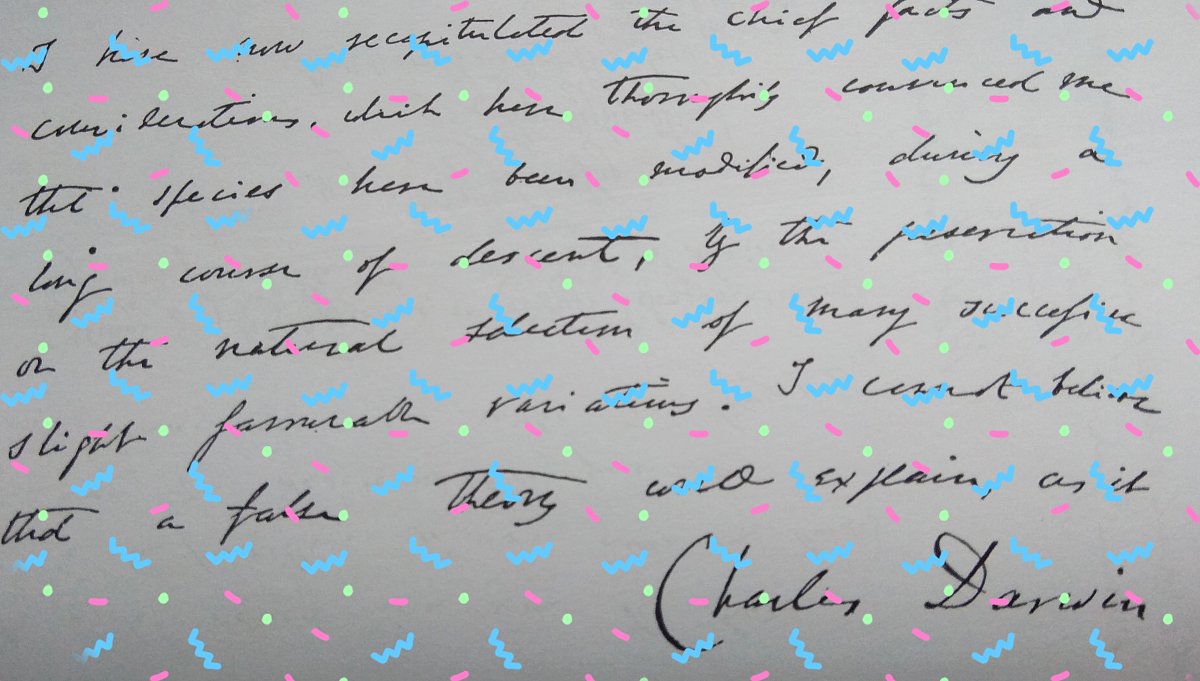 I have now recapitulated the chief facts and
considerations, which have thoroughly convinced me
that species have been modified, during a
long course of descent, by the preservation
or the natural selection of many successive
slight favourable variations. I cannot believe
that a false theory would explain, as it
Charles Darwin